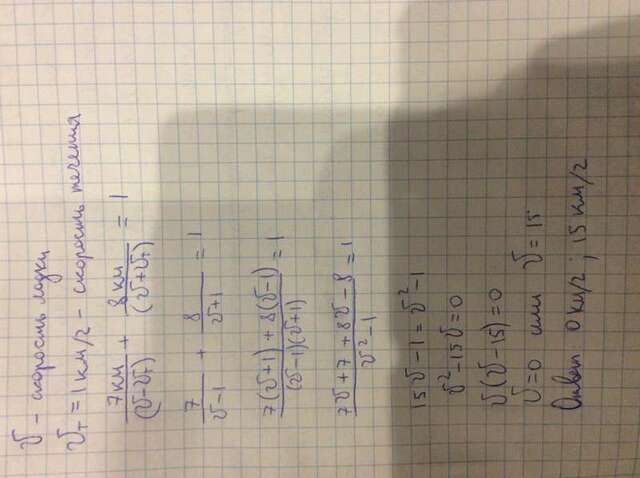 v - скорость лодки
vт = 1 км/ч - скорость течения
7км/(v-vт) + 8км/(v+vт) = 1
7/(v-1) + 8/(v+1) = 1
(7(v+1) + 8(v-1))/((v-1)(v+1)) = 1
(7v+7+8v-8)/(v²-1) = 1
15v-1 = v²-1
v²-15v=0
v(v-15)=0
v=0 или v=15
Ответ 0 км/ч; 15 км/ч